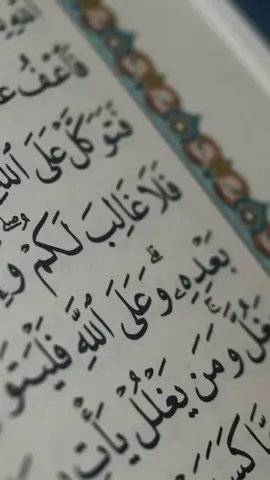 فَٱعْفُ
فَتَوَكَّلْ عَلَى ٱللَّهِ
فَلَا غَالِبَ لَكُمْ ۖ وَإِ
بَعْدِهِۦ ۗ وَعَلَى ٱللَّهِ فَلْيَتَوَ
يَغُلَّ ۚ وَمَن يَغْلُلْ يَأْتِ